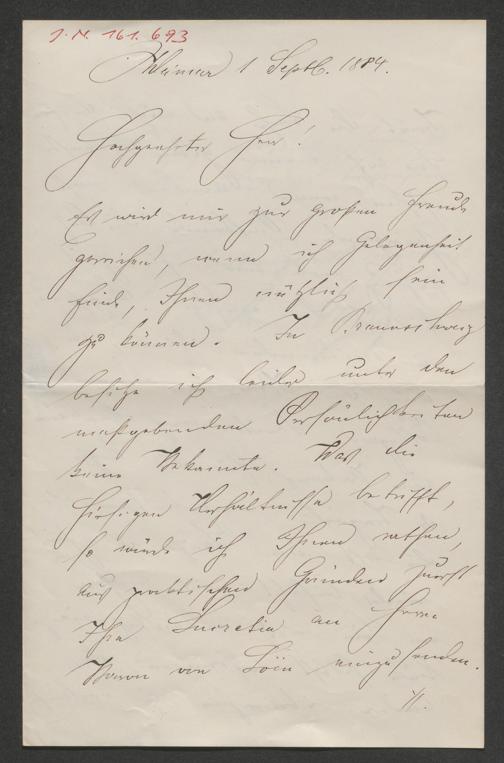 J. N. 161.693
Weimar 1 Septb. 1884.
Hochgeehrter Herr!
Es wird mir zur großen Freude
gereichen, wenn ich Gelegenheit
finde, Ihnen nützlich sein
zu können. In Braunschweig
besitze ich leider unter den
maßgebenden Persönlichkeiten
keine Bekannte. Was die
hiesigen Verhältnisse betrifft,
so würde ich Ihnen rathen,
aus praktischen Gründen zuerst
Ihre Lucretia an Herrn
Baron von Loën einzusenden.
./.